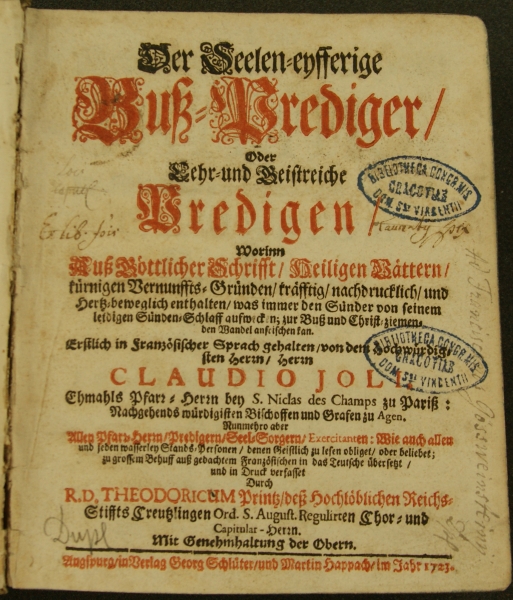 Der Seelen-eyfferige
Buß-Prediger/
Oder
Lehr-und Geistreiche
Predigen/
Worinn
Auß Göttlicher Schrifft/ Heiligen Vättern/
kürnigen Vernunffts-Gründen/ kräfftig/ nachdrucklich/ und
Hertz-beweglich enthalten/ was immer den Sünder von seinem
leidigen Sünden-Schlaff aufwecken; zur Buß und Christ-ziemen-
den Wandel anfrischen kan.
Erstlich in Französischer Sprach gehalten/ von dem Hochwürdig-
sten Herrn/ Herrn
CLAUDIO JOLI,
Ehmahls Pfarr-Herrn bey S. Niclas des Champs zu Pariß:
Nachgehends würdigisten Bischoffen und Grafen zu Agen.
Nunmehro aber
Allen Pfarr-Herrn/ Predigern/ Seel-Sorgern/ Exercitanten: Wie auch allen
und jeden wasserley Stands-Personen/ denen Geistlich zu lesen obliget/ oder beliebet;
zu grossem Behuff auß gedachtem Französischen in das Teutsche übersetzt/
und in Druck verfasset
Durch
R.D. THEODORICUM Printz/ deß Hochlöblichen Reichs-
Stiffts Creutzlingen Ord. S. August. Regulirten Chor- und
Capitular-Herrn.
Mit Genehmhaltung der Obern.
Augspurg/ in Verlag Georg Schlüter/ und Martin Happach/ Im Jahr 1723.
BIBLIOTHECA CONGR. MIS
CRACOVIAE
DOM. Sti VINCENTII
BIBLIOTHECA CONGR. MIS
CRACOVIAE
DOM. Sti VINCENTII
Ex lib.
Dupl